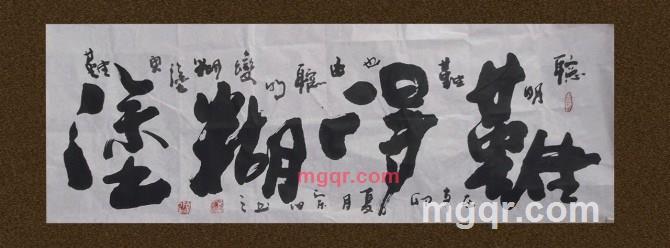 難得糊塗
聰明難也由聰明變糊塗更難
夏月
mgqr.com
mgqr.com